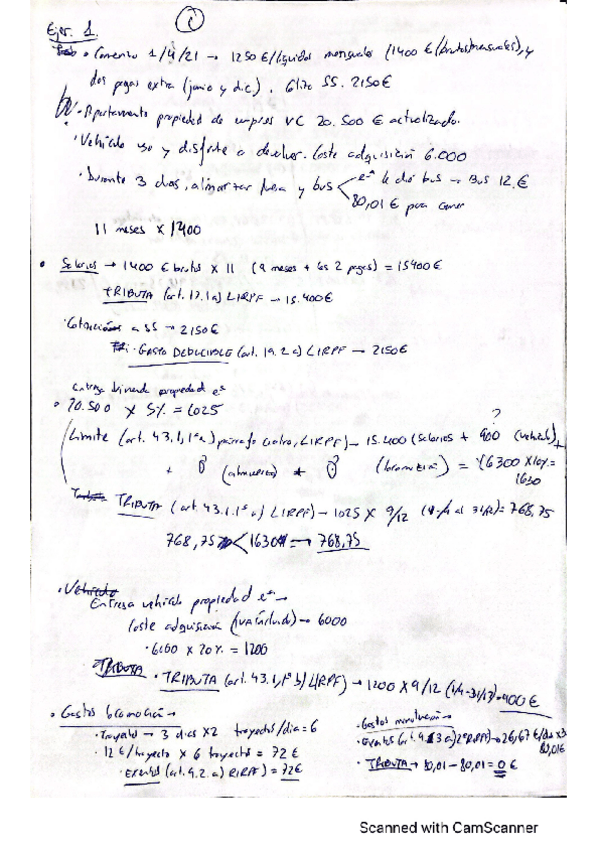 1
Ejer. 1.
• Comienzo 1/4/21 → 1250 €/líquidos mensuales (1400 €/brutos/mensuales), y
dos pagas extra (junio y dic). SS. 2150€
• Apartamento propiedad de empresa VC 20.500 € actualizado.
• Vehículo uso y disfrute a devolver. Coste adquisición 6.000
• Durante 3 días, almorzar fuera y bus eª le dió bus → Bus 12.€
80,01 € para comer
11 meses x 1400
• Salarios → 1400 € brutos x 11 (9 meses + las 2 pagas) = 15400€
TRIBUTA (art. 17.1a) LIRPF → 15.400€
• Cotizaciones a SS → 2150€
• GASTO DEDUCIBLE (art. 19.2 a) LIRPF → 2150€
Entrega vivienda propiedad eª
• 20.500 x 5% = 1025
Límite (art. 43.1,1ºa) párrafo cuatro, LIRPF) → 15.400 (Salarios + 900 (vehículo) +
?
+ 0 (almuerzo) + 0 (locomoción) = 16300 x 10% =
1630
TRIBUTA (art. 43.1.1º a) LIRPF) → 1025 x 9/12 (1/4 al 31/12) = 768,75
768,75 < 1630 → 768,75
• Vehículo
Entrega vehículo propiedad eª →
Coste adquisición (IVA incluido) → 6000
• 6000 x 20% = 1200
TRIBUTA • TRIBUTA (art. 43.1,1º b) LIRPF) → 1200 x 9/12 (1/4-31/12) = 900 €
• Gastos locomoción →
• Trayecto → 3 días x2 trayectos/día = 6
• 12 €/trayecto x 6 trayectos = 72 €
• Exentos (art. 9.2. a) RIRPF) = 72€
• Gastos manutención →
• Exentos (art. 9.3 a) 2º RIRPF) → 26,67 €/día x3
80,01€
• TRIBUTA → 80,01 - 80,01 = 0 €
Scanned with CamScanner